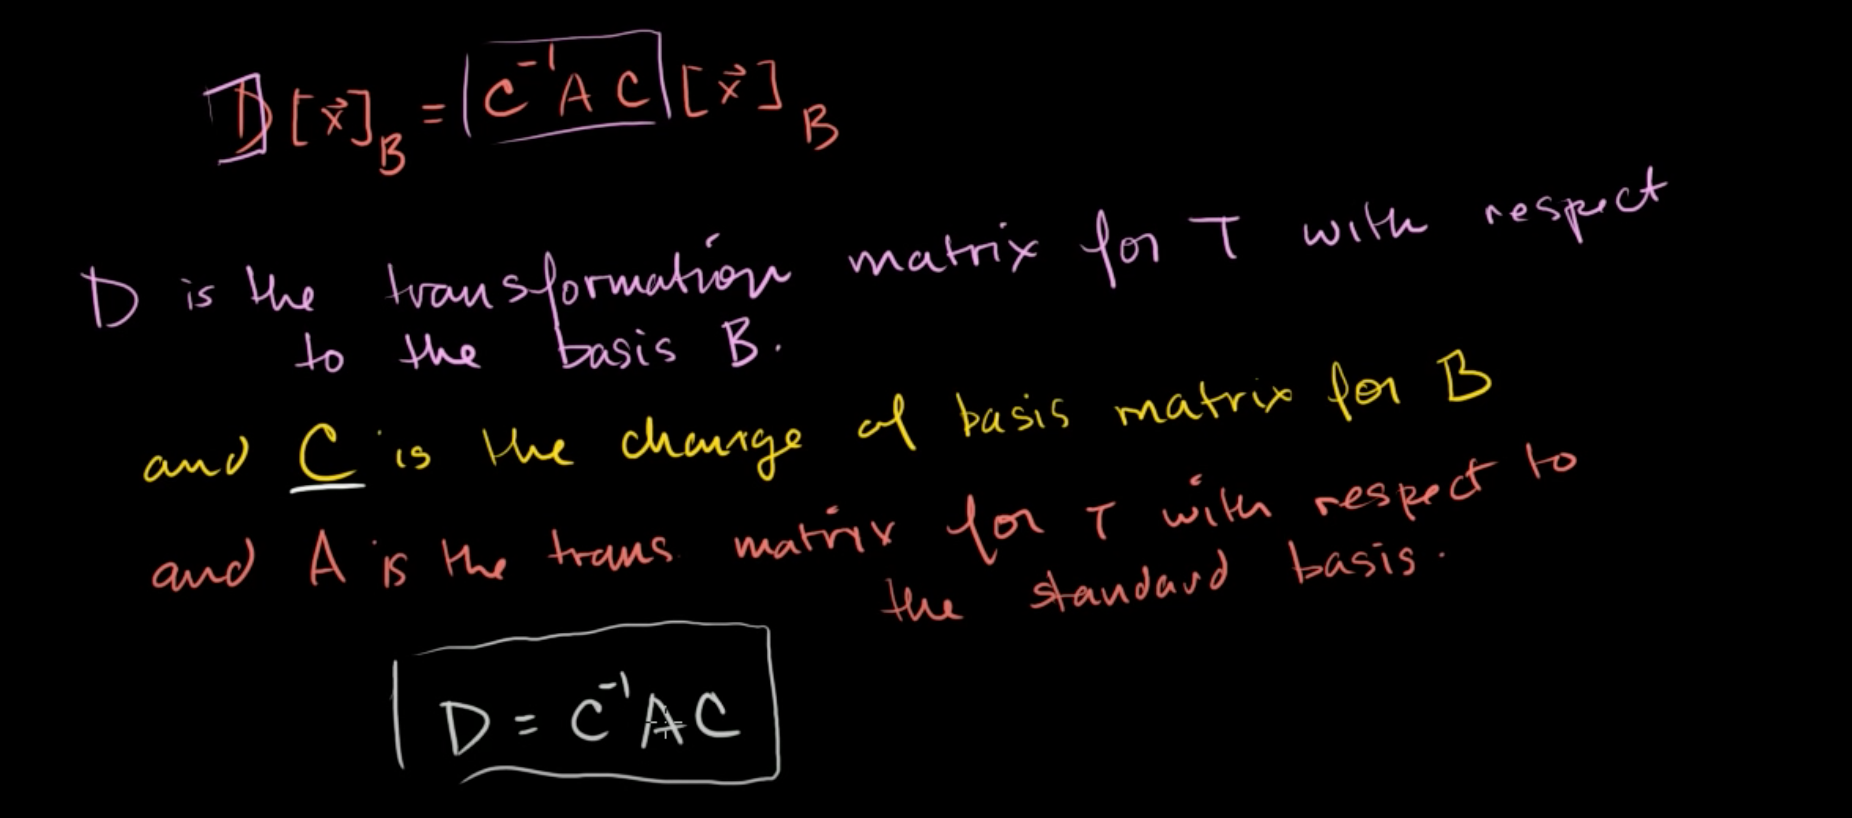 D[x⃗]_B = C⁻¹AC [x⃗]_B
D is the transformation matrix for T with respect
to the basis B.
and C is the change of basis matrix for B
and A is the trans. matrix for T with respect to
the standard basis.
D = C⁻¹AC